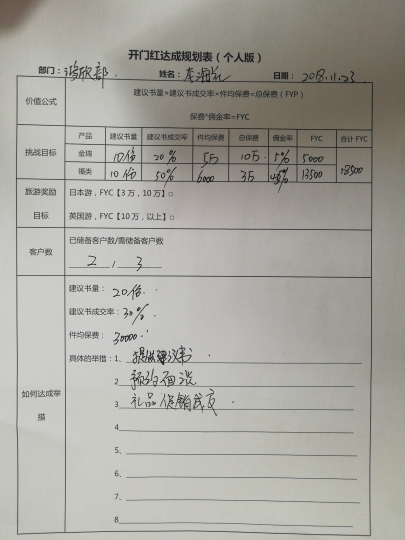 开门红达成规划表（个人版）
部门： 鸿欣部 姓名： 李海兰 日期： 2018.11.23
价值公式 建议书量×建议书成交率×件均保费=总保费（FYP）
保费*佣金率=FYC
挑战目标 产品 建议书量 建议书成交率 件均保费 总保费 佣金率 FYC 合计FYC
金瑞 10份 20% 5万 10万 5% 5000
福类 10份 50% 6000 3万 45% 13500 18500
旅游奖励目标 日本游，FYC【3万，10万】□
英国游，FYC【10万，以上】□
客户数 已储备客户数/需储备客户数
2 , 3
如何达成举措 建议书量： 20份
建议书成交率： 30%
件均保费： 30000
具体的举措：1、 提供建议书
2 预约面谈
3 礼品促销成交
4
5、
6、
7、
8